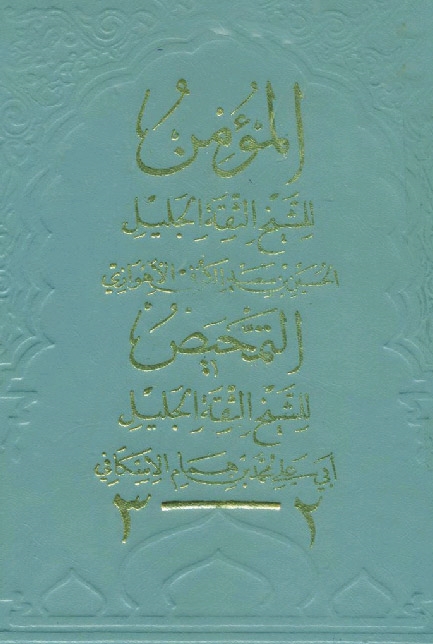 المؤمن
للشيخ الثقة الجليل
الحسين بن سعيد الكوفي الأهوازي
التمحيص
للشيخ الثقة الجليل
أبي علي محمد بن همام الإسكافي
٢ — ٣